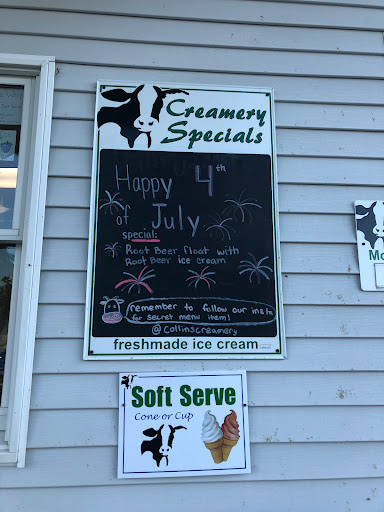 Creamery
Specials
Happy 4th
of July
special:
Root Beer float with
Root Beer ice cream
remember to follow our insta
for secret menu item!
@collinscreamery
freshmade ice cream
Soft Serve
Cone or Cup
Mo